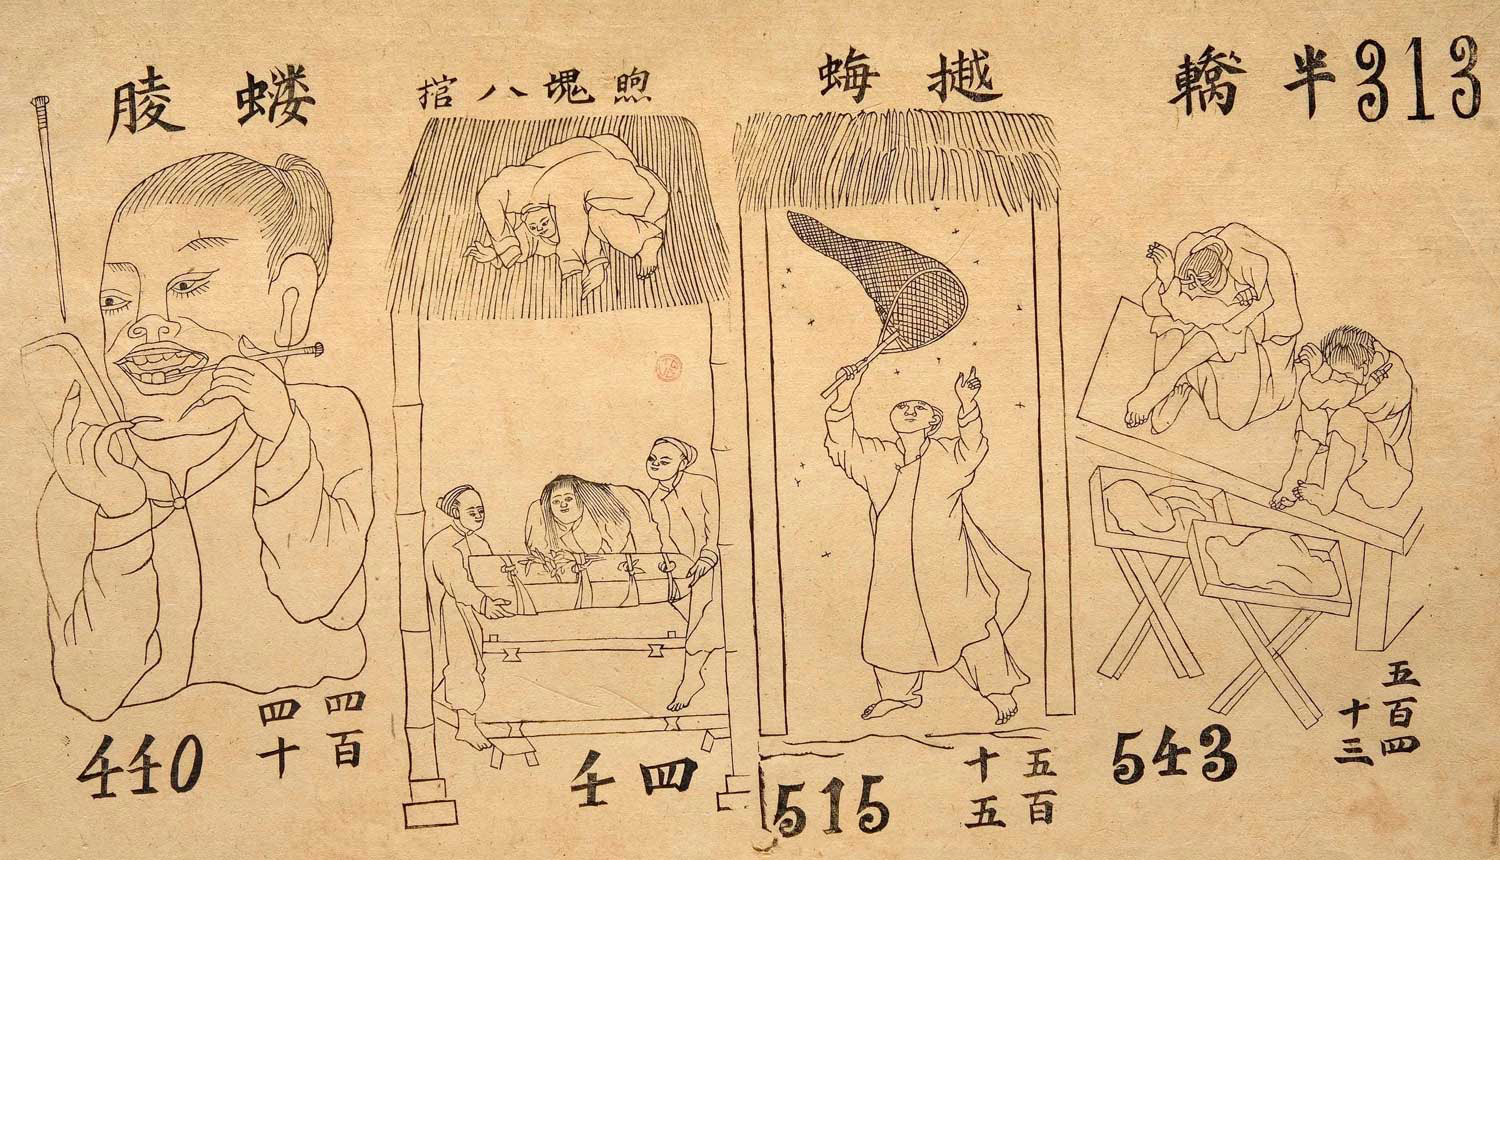 313
半轎
五百四
十三
543
蝳
五百
十五
515
煦塊八棺
四
4
蝼𦝄
四百
四十
440